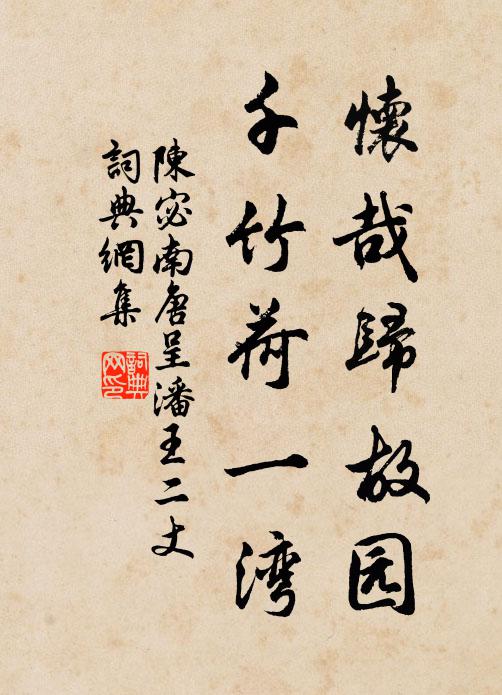 懷哉歸故园
千竹荷一湾
陳宓南唐呈潘王二丈
詞典網集
詞典网印